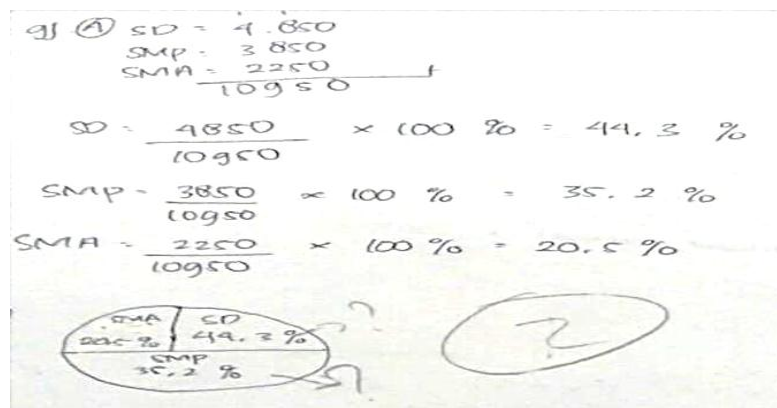 9) A SD = 4.850
SMP = 3850
SMA = 2250 +
10950
SD = 4850 / 10950 × 100 % = 44,3 %
SMP = 3850 / 10950 × 100 % = 35.2 %
SMA = 2250 / 10950 × 100 % = 20,5 %
SMA SD
20,5 % 44.3 % ?
SMP
35,2 % ?
2